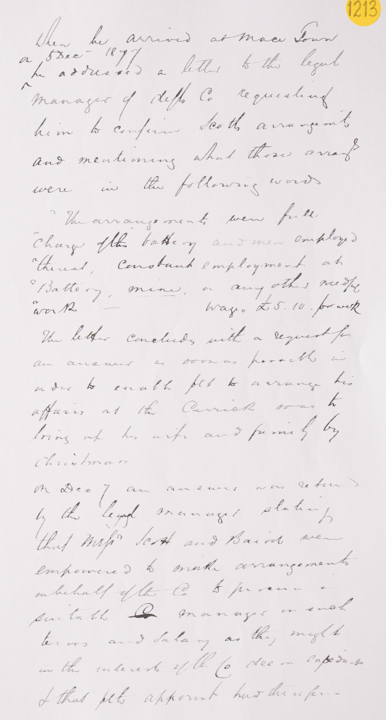 1213
When he arrived at Mace Town
a 5 Dec 1877
he addressed a letter to the legal
manager of defts Co requesting
him to confirm Scotts arrangements
and mentioning what those
were in the following words
"The arrangements were full
"charge of the battery and men employed
"thereat, constant employment at
"Battery, mine, or any other
"work — Wages £5.10. per week
The letter concludes with a request for
an answer as soon as possible in
order to enable plt to arrange his
affairs at the so as to
bring up his wife and family by
Christmas
On Dec 7 an answer was
by the legal manager stating
that Messrs Scott and Baird were
empowered to make arrangements
on behalf of the Co to procure a
suitable manager on such
terms and salary as they might
in the interests of the Co deem
& that plts appointment